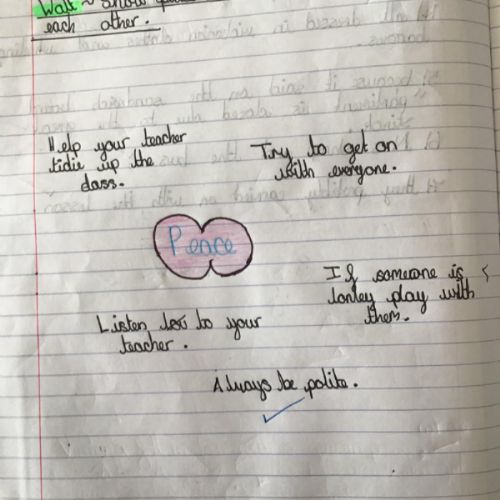 Walt ~ Show
each other.
Help your teacher
tidie up the
class.
Try to get on
with everyone.
Peace
If someone is
lonley play with
them.
Listen to your
teacher.
Always be polite.